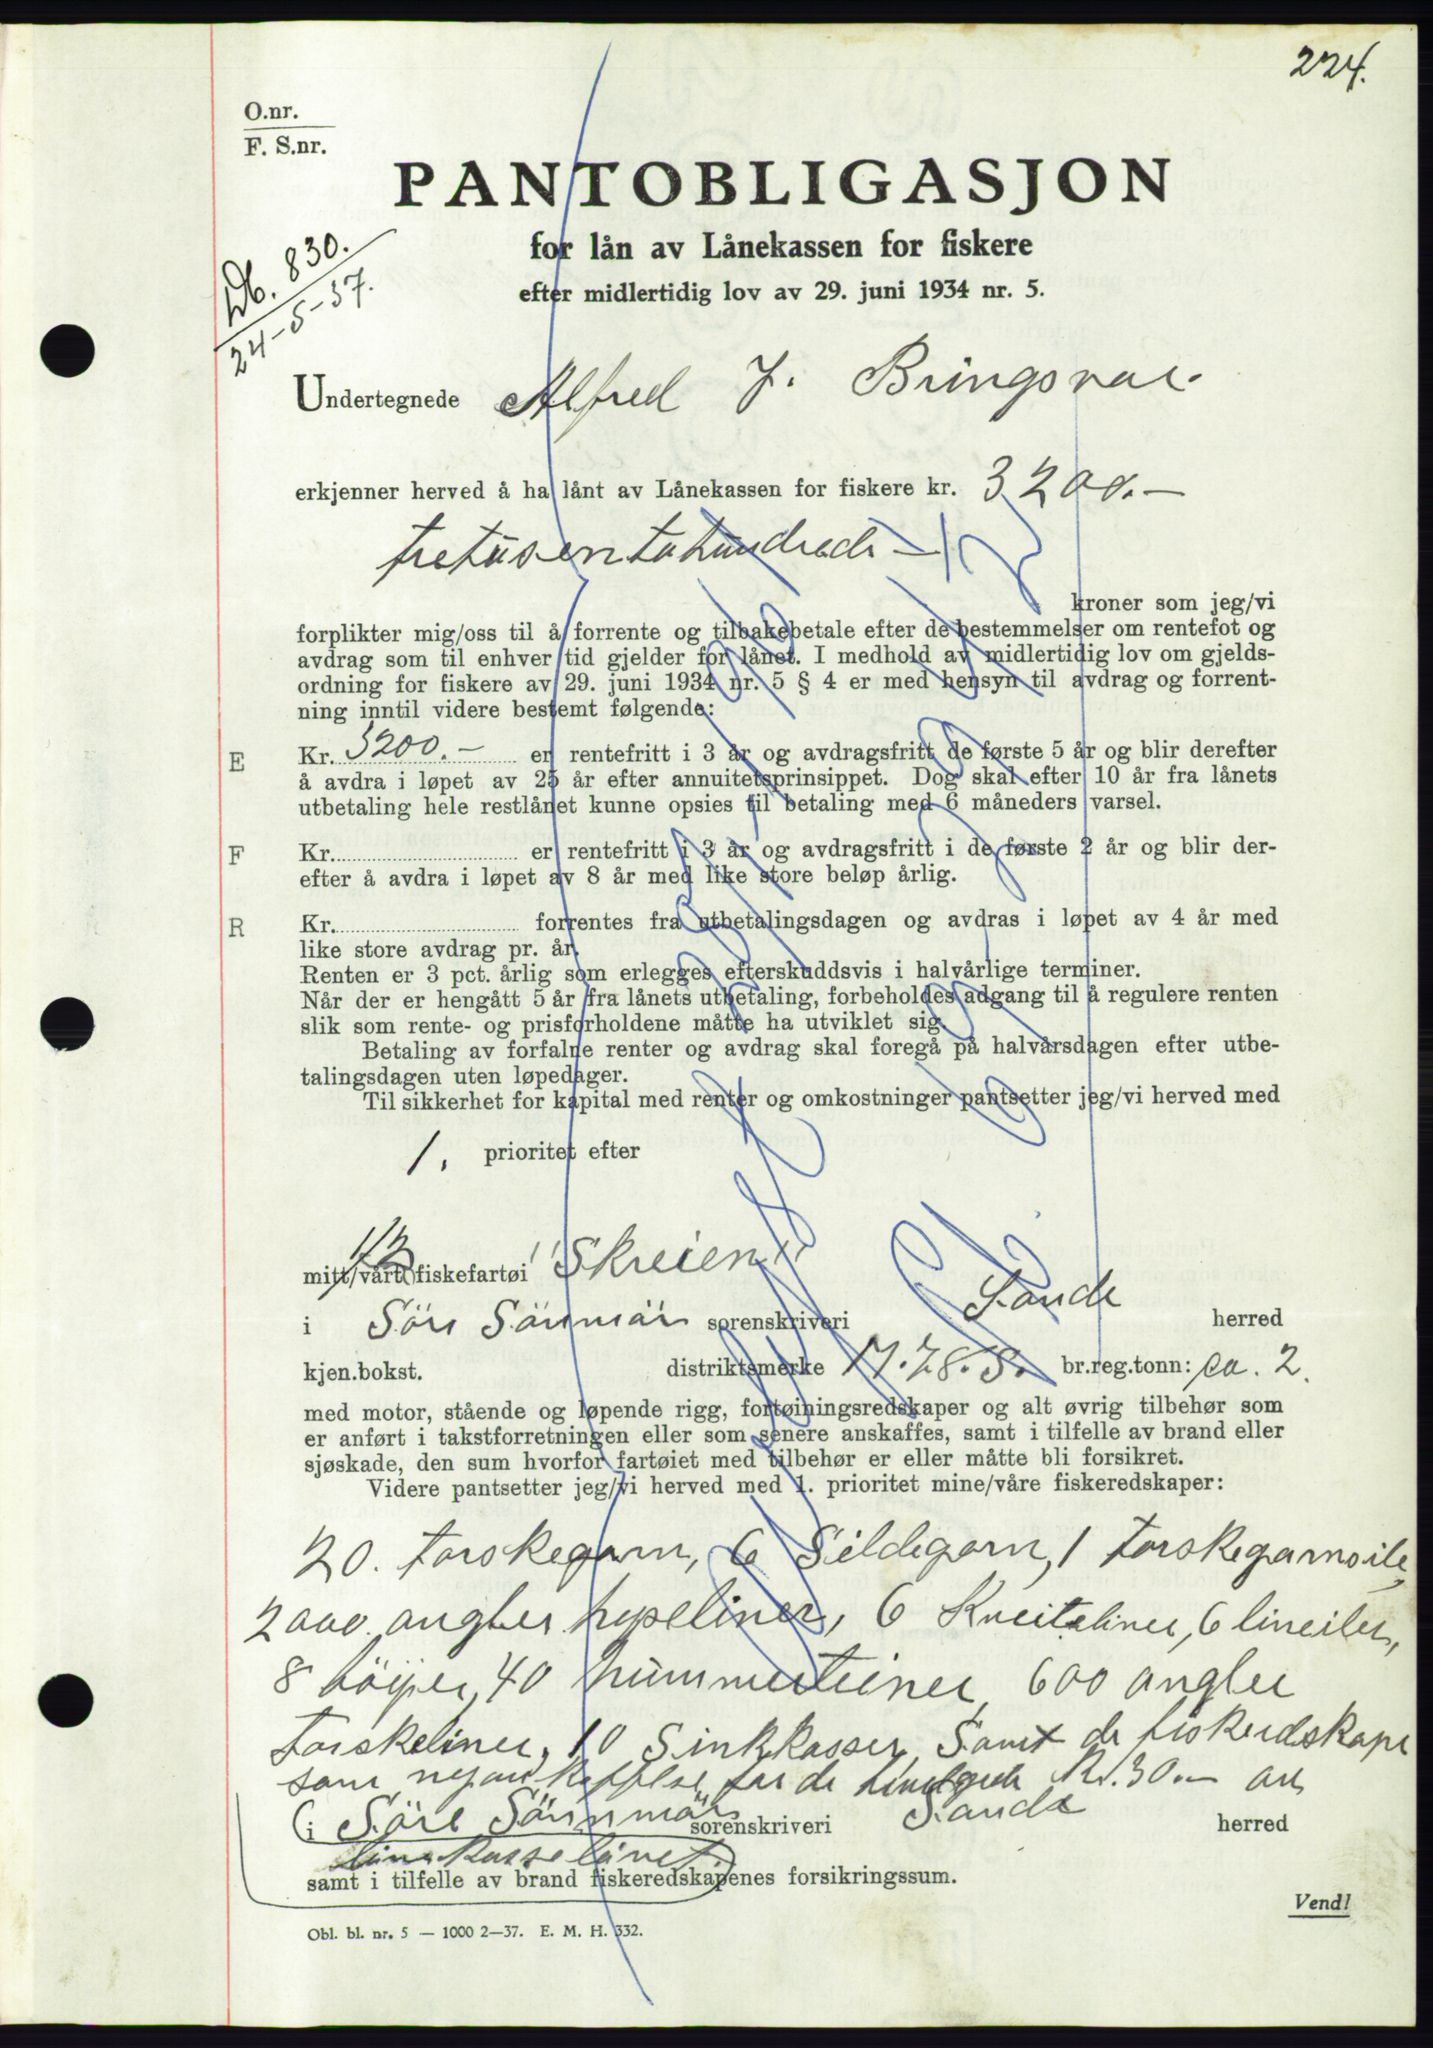 224.
O.nr.
F. S.nr.
PANTOBLIGASJON
for lån av Lånekassen for fiskere
efter midlertidig lov av 29. juni 1934 nr. 5.
Db. 830.
24-5-37.
Undertegnede Alfred J. Bringsvor
erkjenner herved å ha lånt av Lånekassen for fiskere kr. 3200.-
tretusentohundrede -
kroner som jeg/vi
forplikter mig/oss til å forrente og tilbakebetale efter de bestemmelser om rentefot og
avdrag som til enhver tid gjelder for lånet. I medhold av midlertidig lov om gjelds-
ordning for fiskere av 29. juni 1934 nr. 5 § 4 er med hensyn til avdrag og forrent-
ning inntil videre bestemt følgende:
E Kr. 3200.- er rentefritt i 3 år og avdragsfritt de første 5 år og blir derefter
å avdra i løpet av 25 år efter annuitetsprinsippet. Dog skal efter 10 år fra lånets
utbetaling hele restlånet kunne opsies til betaling med 6 måneders varsel.
F Kr. er rentefritt i 3 år og avdragsfritt i de første 2 år og blir der-
efter å avdra i løpet av 8 år med like store beløp årlig.
R Kr. forrentes fra utbetalingsdagen og avdras i løpet av 4 år med
like store avdrag pr. år.
Renten er 3 pct. årlig som erlegges efterskuddsvis i halvårlige terminer.
Når der er hengått 5 år fra lånets utbetaling, forbeholdes adgang til å regulere renten
slik som rente- og prisforholdene måtte ha utviklet sig.
Betaling av forfalne renter og avdrag skal foregå på halvårsdagen efter utbe-
talingsdagen uten løpedager.
Til sikkerhet for kapital med renter og omkostninger pantsetter jeg/vi herved med
1. prioritet efter
1/2
mitt/vårt fiskefartøi "Skreien"
i Söre Sönmör sorenskriveri Sande herred
kjen.bokst. distriktsmerke M.28.S. br.reg.tonn: ca. 2.
med motor, stående og løpende rigg, fortøiningsredskaper og alt øvrig tilbehør som
er anført i takstforretningen eller som senere anskaffes, samt i tilfelle av brand eller
sjøskade, den sum hvorfor fartøiet med tilbehør er eller måtte bli forsikret.
Videre pantsetter jeg/vi herved med 1. prioritet mine/våre fiskeredskaper:
20. torskegarn, 6 Sildegarn, 1 torskegarnsile,
2000 angler hyseliner, 6 Kveiteliner, 6 lineiler,
8 böyer, 40 hummerteiner, 600 angler
torskeliner, 10 Sinkkasser, Samt de fiskeredskaper
som nyanskaffelse for de Kr. 30.- av
i Söre Sönnmör sorenskriveri Sande herred
lånekasselånet
samt i tilfelle av brand fiskeredskapenes forsikringssum.
Vend!
Obl. bl. nr. 5 — 1000 2—37. E. M. H. 332.